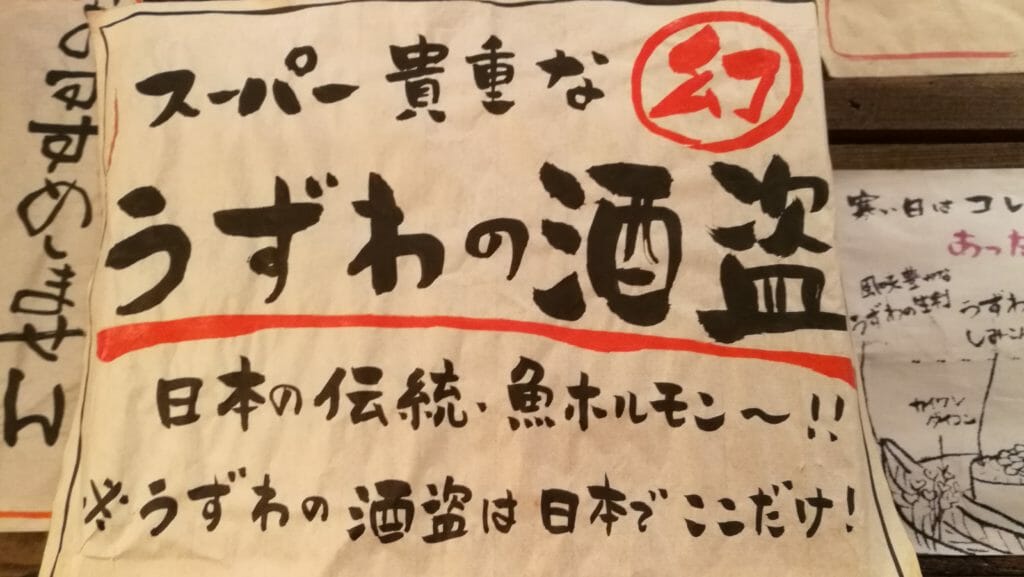 スーパー貴重な幻
うずわの酒盗
日本の伝統、魚ホルモン〜!!
※うずわの酒盗は日本でここだけ!
おすすめしません
寒い日はコレ
あった
風味豊かな
うずわの生利
うずわ
しみこ
カイワレ
ダイコン